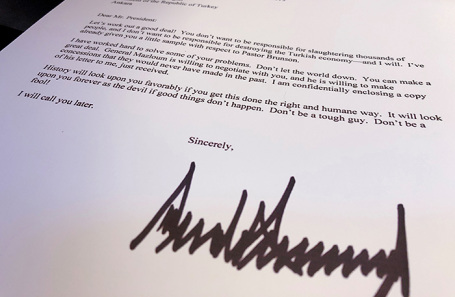 of the Republic of Turkey
Ankara
Dear Mr. President:
Let's work out a good deal! You don't want to be responsible for slaughtering thousands of
people, and I don't want to be responsible for destroying the Turkish economy—and I will. I've
already given you a little sample with respect to Pastor Brunson.
I have worked hard to solve some of your problems. Don't let the world down. You can make a
great deal. General Mazloum is willing to negotiate with you, and he is willing to make
concessions that they would never have made in the past. I am confidentially enclosing a copy
of his letter to me, just received.
History will look upon you favorably if you get this done the right and humane way. It will look
upon you forever as the devil if good things don't happen. Don't be a tough guy. Don't be a
fool!
I will call you later.
Sincerely,